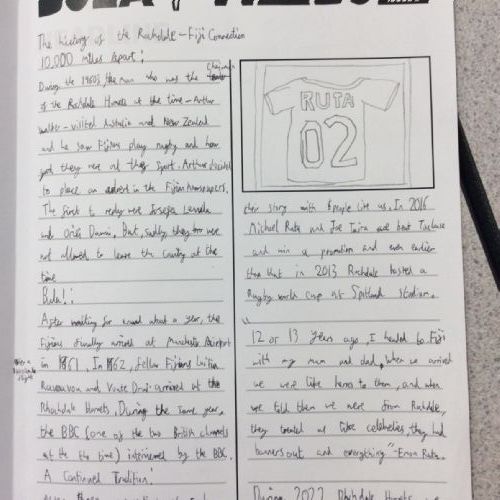 The history of the Rochdale - Fiji Connection
10,000 miles apart!
During the 1960s, the man who was the Chairman
of the Rochdale Hornets at the time - Arthur
walker - visited Australia and New Zealand
and he saw Fijians play rugby and how
good they were at the sport. Arthur decided
to place an advert in the Fijian newspapers.
The first to reply were Josefa Levula
and Orisi Dawai. But, sadly, they were
not allowed to leave the county at the
time
Bula!:
After waiting for around about a year, the
Fijians finally arrived at Manchester Airport
in 1961. In 1962, fellow Fijians Laitia
Ravouvou and Voate Driu arrived at the
Rhochdale Hornets. During the same year,
the BBC (one of the two British channels
at the time) interviewed by the BBC.
A Continued Tradition:
RUTA
02
their story with people like us. In 2016
Michael Ratu and Joe Taira beat Toulouse
and win a promotion and even earlier
than that in 2013 Rochdale hosted a
Rugby world cup at Spotland stadium.
"
12 or 13 years ago, I headed to Fiji
with my mum and dad, when we arrived
we were like heros to them, and when
we told them we were from Rochdale,
they treated us like celebrities, they had
banners out and everything" - Emon Ratu.
During 2022 Rhochdale Hornets